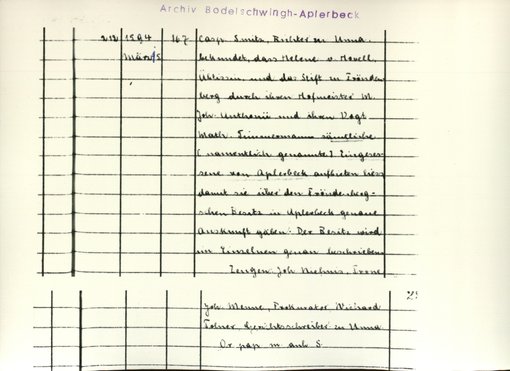 Archiv Bodelschwingh-Aplerbeck
212 1594 167 Casp. Smitz, Richter zu Unna,
März 15 bekundet, dass Helene v. Morell,
Äbtissin, und das Stift in Frönden-
berg durch ihren Hofmeister M.
Joh. und ihren Vogt
Math. Timmermann sämtliche
(namentlich genannte) Eingeses-
sene von Aplerbeck aufbieten liess
damit sie über den Fröndenberg-
schen Besitz in Aplerbeck genaue
Auskunft gäben. Der Besitz wird
im Einzelnen genau beschrieben
Zeugen Joh
Joh. Menne, Prokurator,
Gerichtsschreiber zu Unna
Or. pap. m. anh. S.